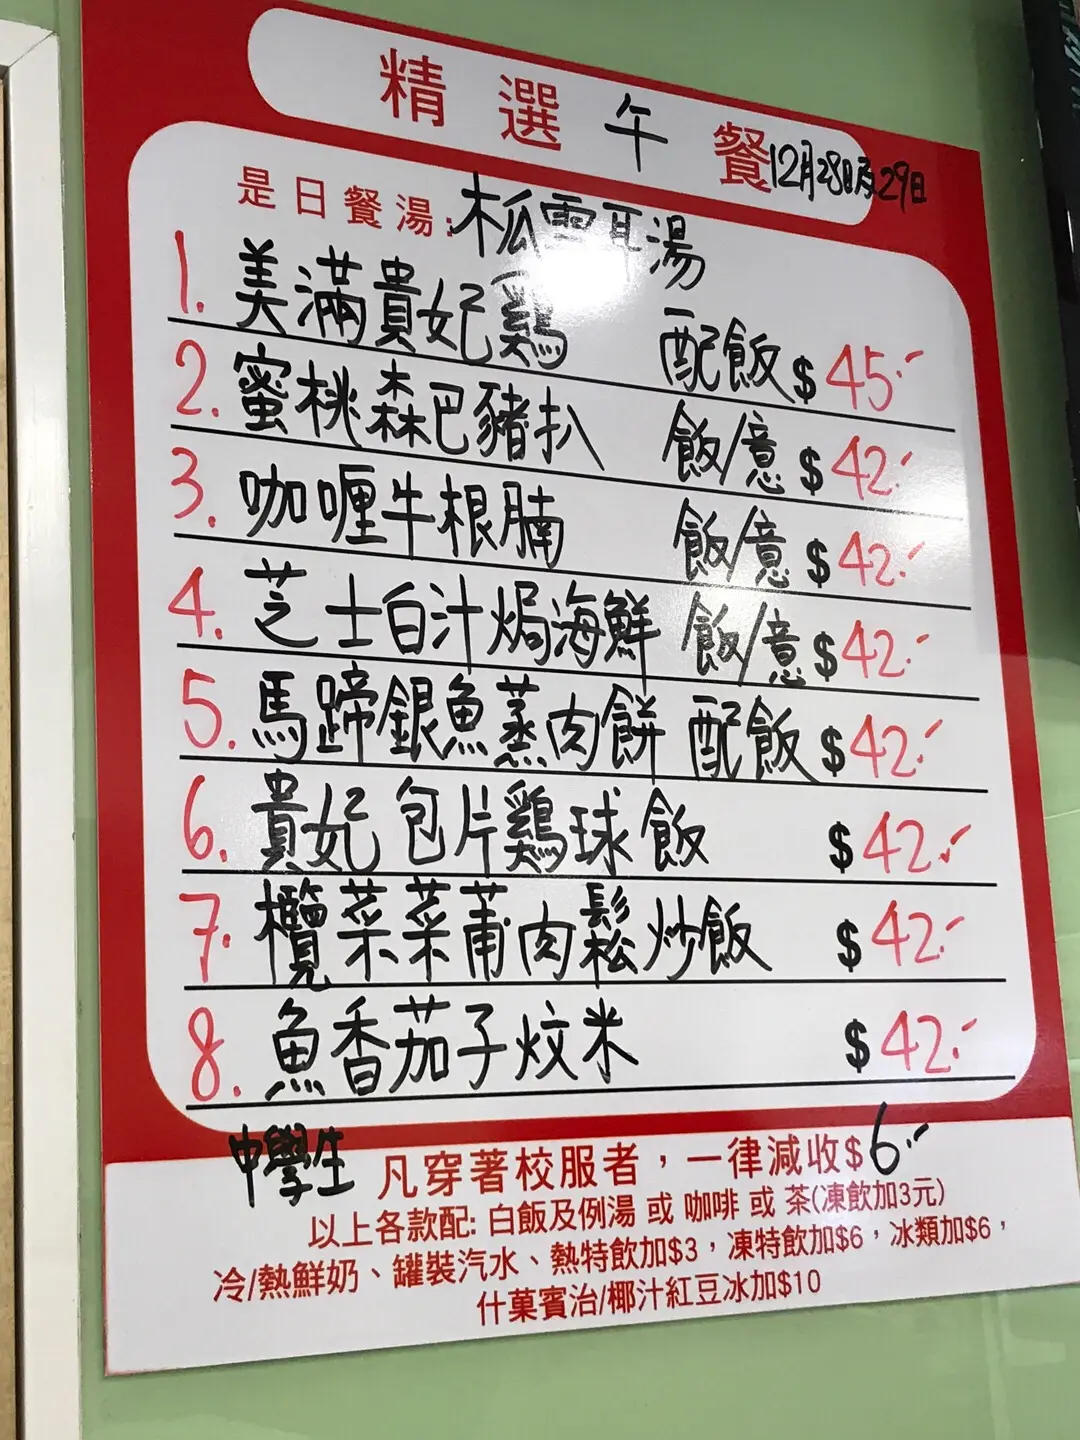 精選午餐 12月28日及29日
是日餐湯: 木瓜雪耳湯
1. 美滿貴妃鷄 配飯 $45.-
2. 蜜桃森巴豬扒 飯/意 $42.-
3. 咖喱牛根腩 飯/意 $42.-
4. 芝士白汁焗海鮮 飯/意 $42.-
5. 馬蹄銀魚蒸肉餅 配飯 $42.-
6. 貴妃包片鷄球飯 $42.-
7. 欖菜菜莆肉鬆炒飯 $42.-
8. 魚香茄子炆米 $42.-
中學生 凡穿著校服者，一律減收$6.-
以上各款配: 白飯及例湯 或 咖啡 或 茶(凍飲加3元)
冷/熱鮮奶、罐裝汽水、熱特飲加$3，凍特飲加$6，冰類加$6，
什菓賓治/椰汁紅豆冰加$10